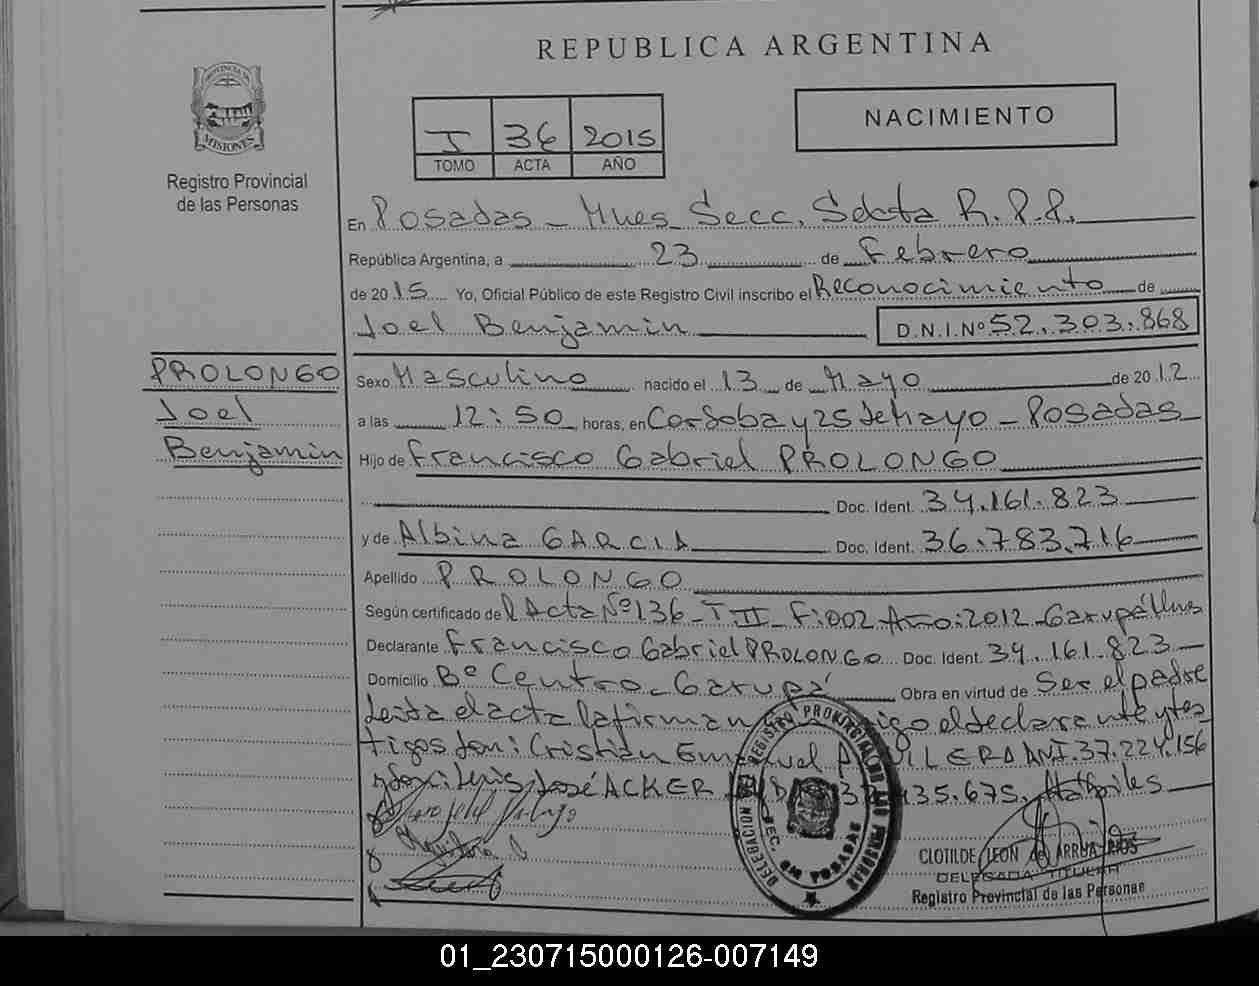 REPUBLICA ARGENTINA
PROVINCIA DE
MISIONES
Registro Provincial
de las Personas
I 36 2015
TOMO ACTA AÑO
NACIMIENTO
En Posadas - Mnes Secc. Sexta R.P.P.
República Argentina, a 23 de Febrero
de 2015 Yo, Oficial Público de este Registro Civil inscribo el Reconocimiento de
Joel Benjamin D.N.I.Nº 52.303.868
PROLONGO
Joel
Benjamin
Sexo Masculino nacido el 13 de Mayo de 2012
a las 12:50 horas, en Cordoba y 25 de Mayo - Posadas
Hijo de Francisco Gabriel PROLONGO
Doc. Ident. 34.161.823
y de Albina GARCIA Doc. Ident. 36.783.716
Apellido PROLONGO
Según certificado del Acta Nº 136 - T II - F:002 Año:2012 - Garupá Mns
Declarante Francisco Gabriel PROLONGO Doc. Ident. 34.161.823
Domicilio Bº Centro - Garupá Obra en virtud de Ser el padre
Leida el acta la firman el declarante y tes-
tigos son: Cristian DNI.37.224.156
José ACKER 35.675.
DELEGACION DEL REGISTRO PROVINCIAL DE LAS PERSONAS
SEC. 6TA POSADAS
CLOTILDE LEON de ARRUA RIOS
DELEGADA TITULAR
Registro Provincial de las Personas
01_230715000126-007149